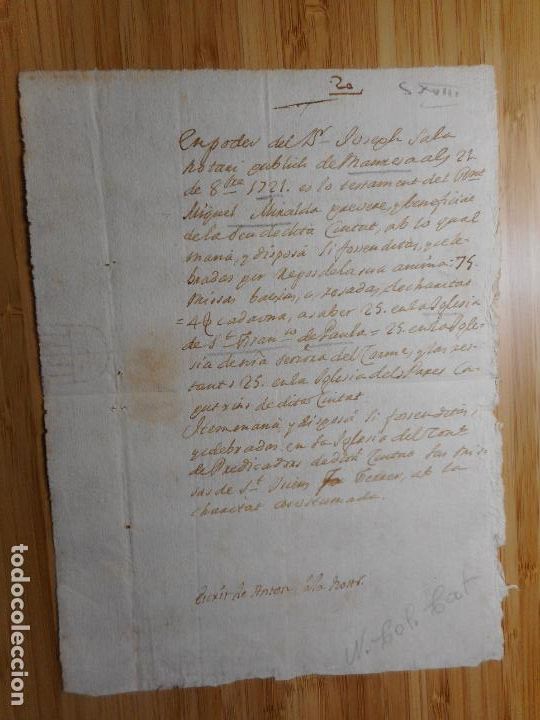 20
S XVIII
En poder del Dr. Joseph Sala
Notari publich de Manresa als 22
de 8bre 1721. es lo testament del
Miquel Miralda prevere, y beneficiat
de la Seu de dita Ciutat, ab lo qual
maná, y disposá li fossen ditas, y cele
bradas per repos de la sua anima 75.
Missas baixas, o resadas, de charitat
cadauna, a saber 25. en la Iglesia
de St. Fran.co de Paula = 25. en la Igle
sia de nra Senora del Carme, y las res
tants 25. en la Iglesia dels Pares Ca
putxins de dita Ciutat
Item maná, y disposá li fossen ditas,
y celebradas en la Iglesia del Cont.
de Predicadors de dita Ciutat las mis
sas de St. Vicens Ferrer, ab la
charitat acostumada.
de Anton
N. Col. Cat
todocoleccion